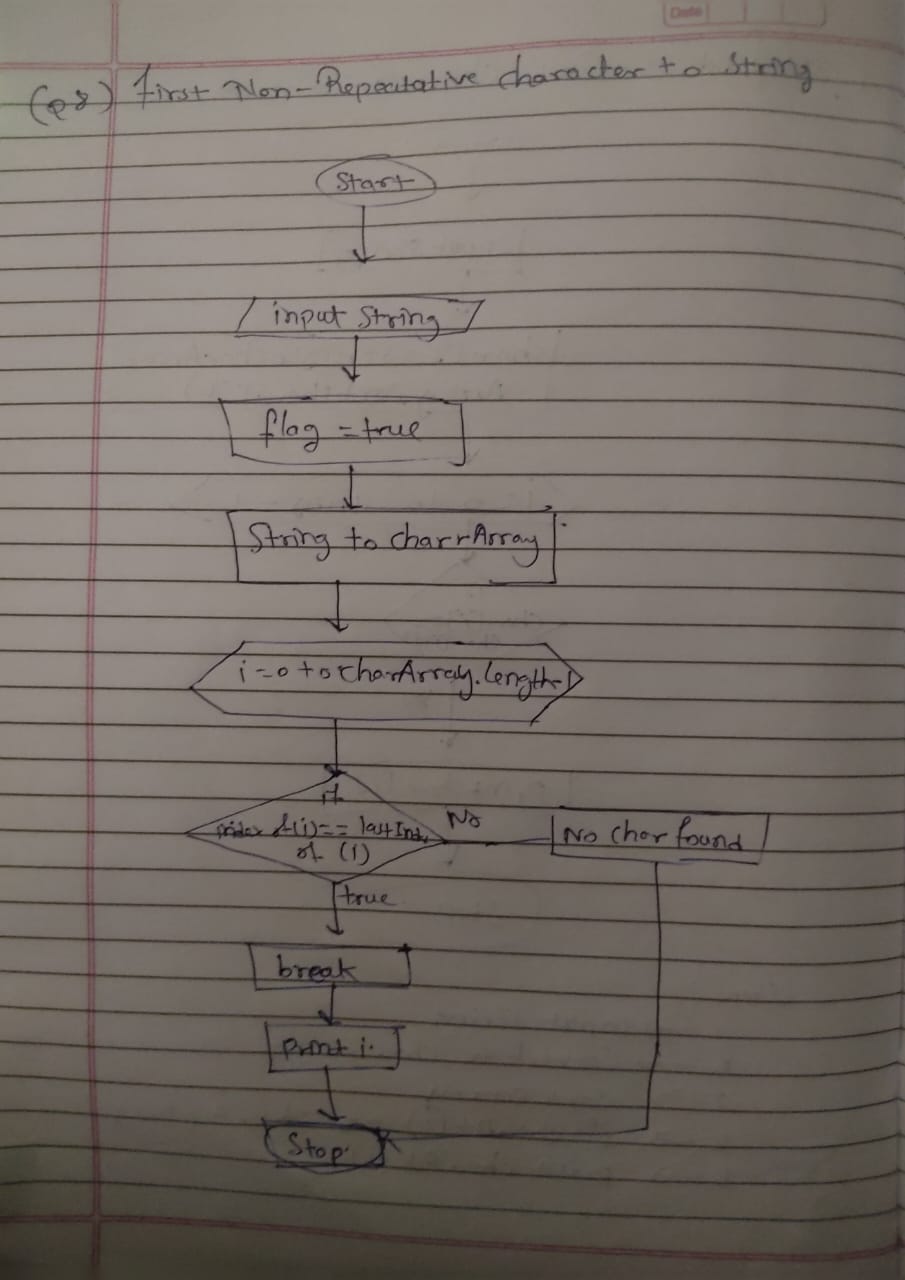 Date
(Q8) First Non-Repeatative character to String
Start
input String
flag = true
String to charrArray
i=0 to charArray.length-1
if
index of(i)== lastInd
of (i)
No
No char found
true
break
Print i.
Stop.